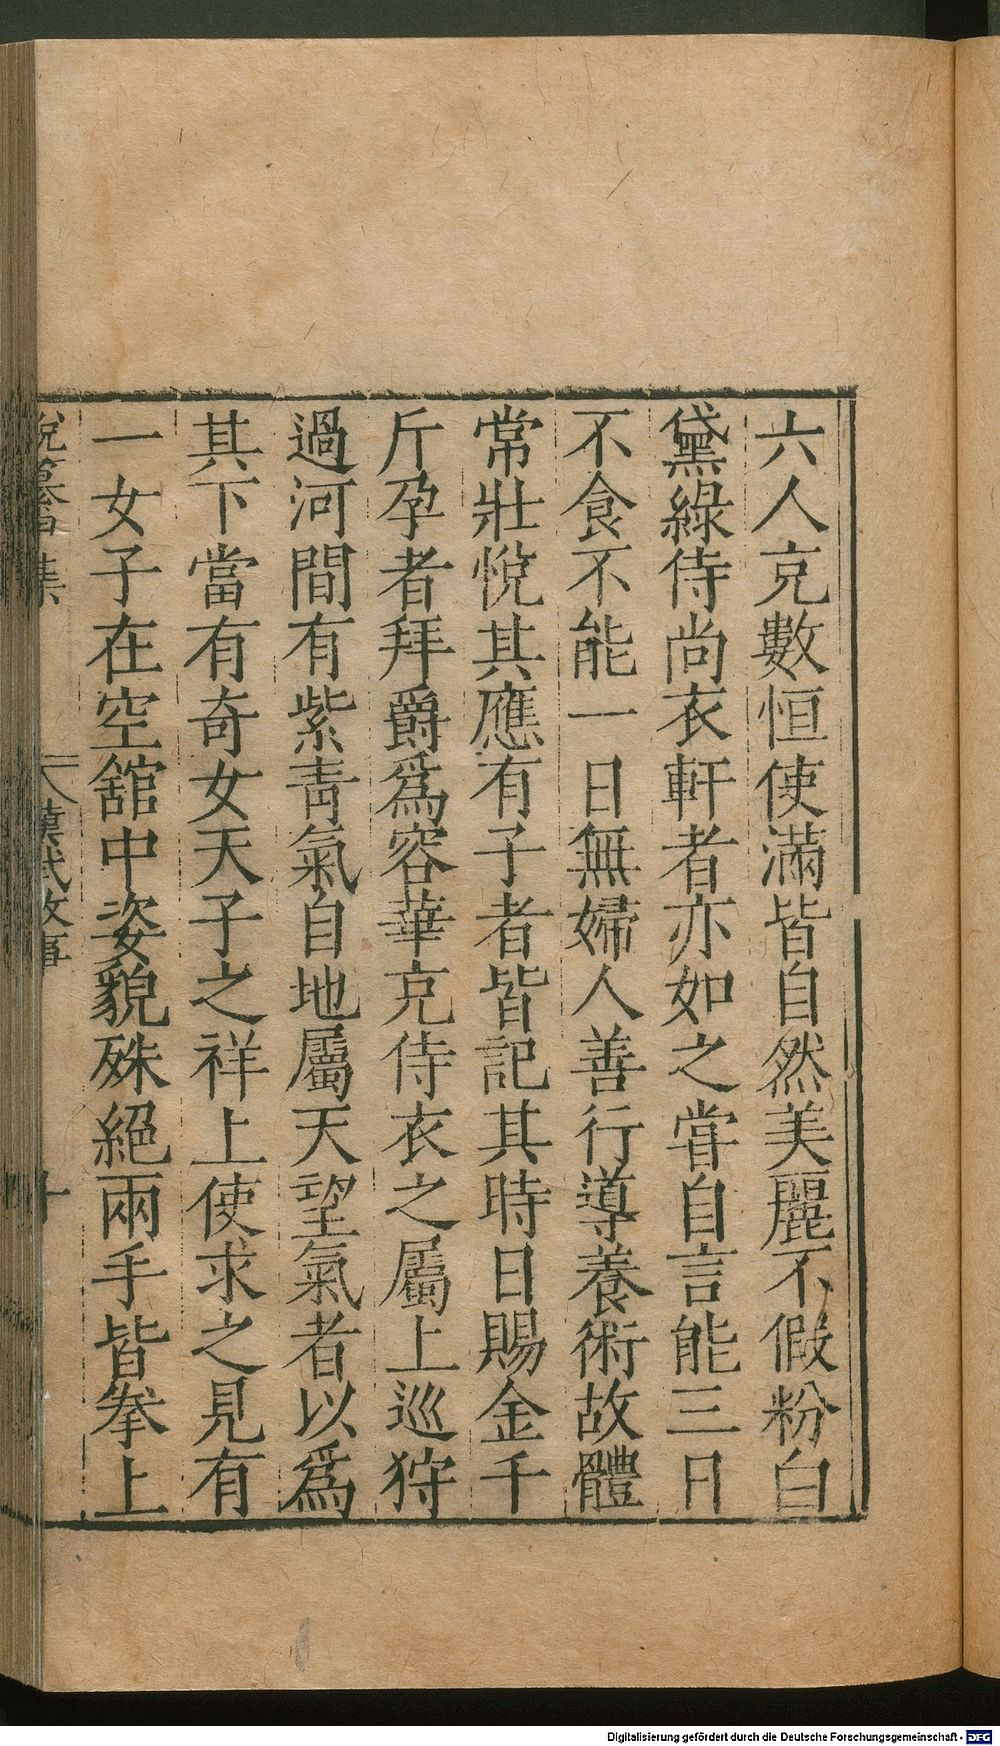 六人充數恒使滿皆自然美麗不假粉白
黛綠侍尚衣軒者亦如之甞自言能三日
不食不能一日無婦人善行導養術故體
常壯悅其應有子者皆記其時日賜金千
斤孕者拜爵爲容華充侍衣之屬上巡狩
過河間有紫青氣自地屬天望氣者以爲
其下當有奇女天子之祥上使求之見有
一女子在空舘中姿貌殊絕兩手皆拳上
說纂 集 漢武故事 十
Digitalisierung gefördert durch die Deutsche Forschungsgemeinschaft - DFG